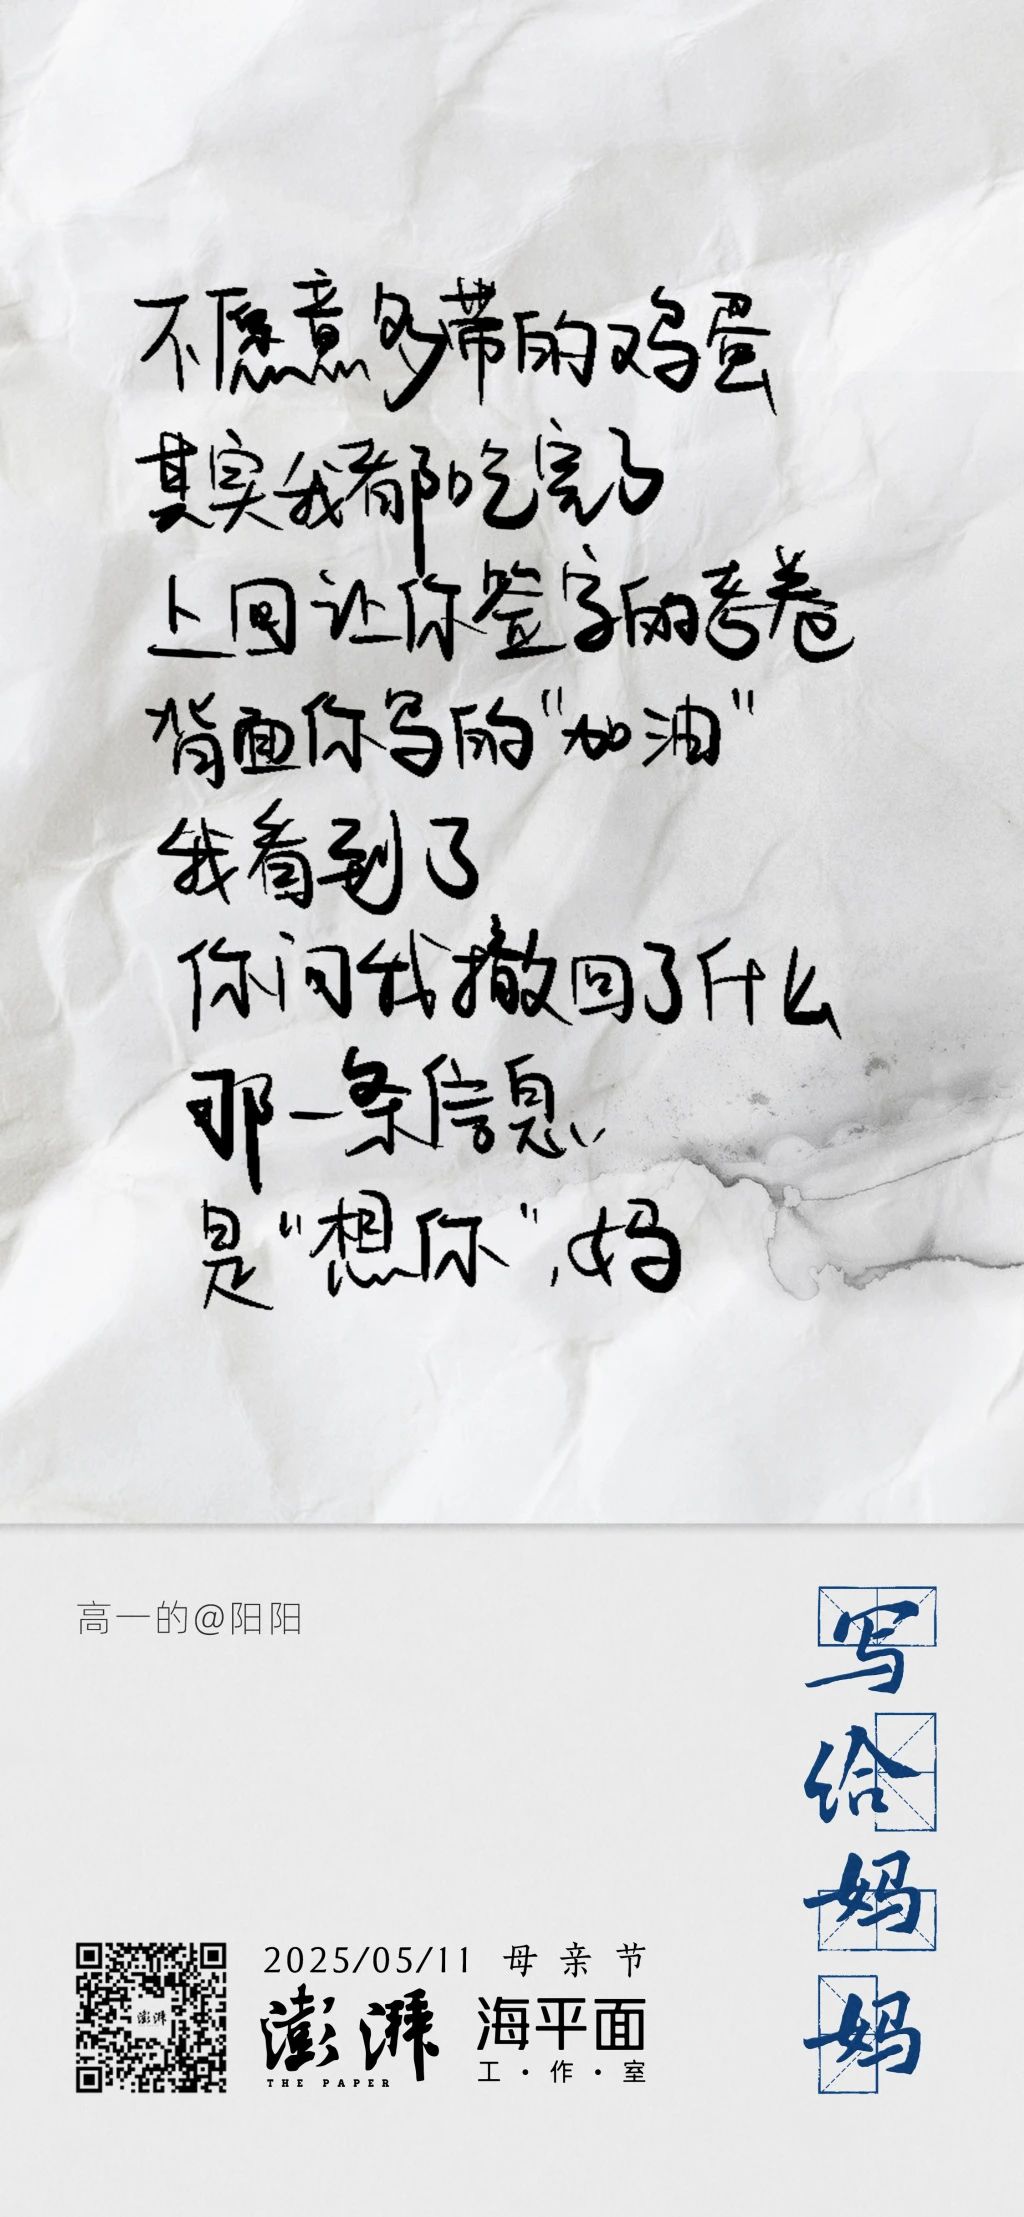 不愿意多带的鸡蛋
其实我都吃完了
上回让你签字的考卷
背面你写的“加油”
我看到了
你问我撤回了什么
那一条信息
是“想你”,妈
高一的@阳阳
写给妈妈
澎湃
2025/05/11 母亲节
澎湃 海平面
THE PAPER 工·作·室